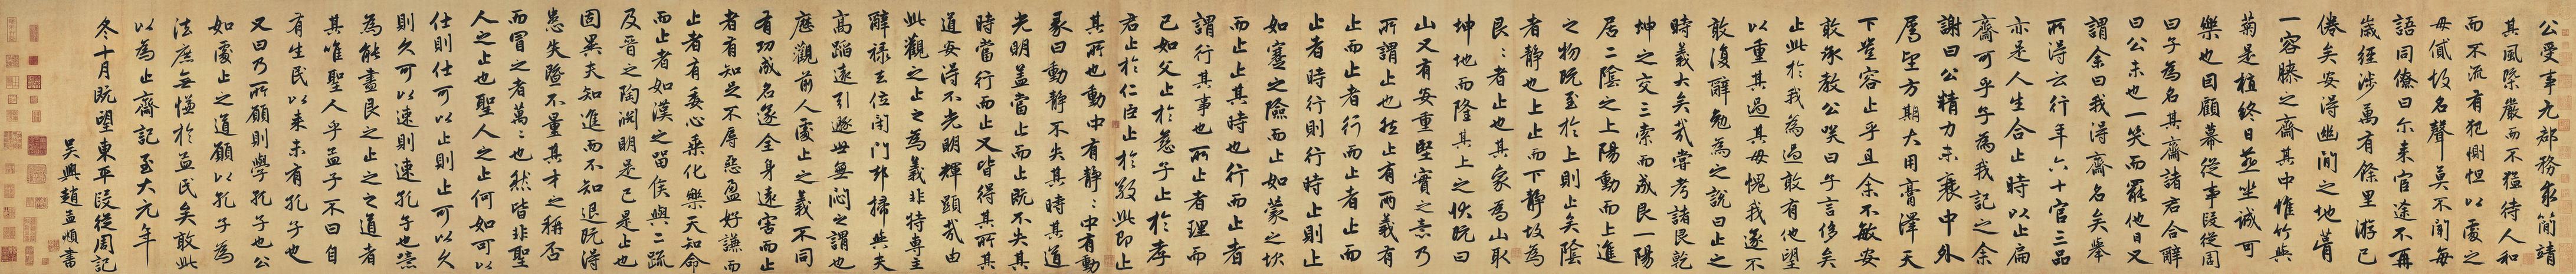 公受事尤郡務求簡靖
其風槩嚴而不猛待人和
而不流有犯惻怛以處之
毋貳故名聲莫不聞每
語同僚曰尓來宦途不再
歲經涉萬有餘里游已
倦矣安得幽閒之地葺
一容膝之齋其中惟竹與
菊是植終日燕坐誠可
樂也因顧幕從事段從周
曰子為名其齋諸君合辭
曰公未也一笑而罷他日又
謂余曰我得齋名矣舉
所得云行年六十官三品
亦是人生合止時以止扁
齋可乎子為我記之余
謝曰公精力未衰中外
屬望方期大用膏澤天
下豈容止乎且余不敏安
敢承教公咲曰子言侈矣
止此於我為過敢有他望
以重其過其毋愧我遂不
敢復辭勉為之說曰止之
時義大矣哉嘗考諸艮乾
坤之交三索而成艮一陽
居二陰之上陽動而上進
之物既至於上則止矣陰
者靜也上止而下靜故為
艮艮者止也其象為山取
坤地而隆其上之狀既曰
山又有安重堅實之意乃
所謂止也然止有兩義有
止而止者行而止者止而
止者時行則行時止則止
如蹇之險而止如蒙之坎
而止止其時也行而止者
謂行其事也所止者理而
已如父止於慈子止於孝
君止於仁臣止於敬此即止
其所也動中有靜靜中有動
彖曰動靜不失其時其道
光明蓋當止而止既不失其
時當行而止又皆得其所其
道安得不光明輝顯哉由
此觀之止之為義非特專主
辭祿去位閉門却掃與夫
高蹈遠引遯世無悶之謂也
歷觀前人處止之義不同
有功成名遂全身遠害而止
者有知足不辱惡盈好謙而
止者有委心乘化樂天知命
而止者如漢之留侯與二疏
及晉之陶淵明是已是止也
固異夫知進而不知退既得
患失曁不量其才之稱否
而冒之者萬萬也然皆非聖
人之止也聖人之止何如可以
仕則仕可以止則止可以久
則久可以速則速孔子也噫
為能盡艮之止之之道者
其唯聖人乎孟子不曰自
有生民以來未有孔子也
又曰乃所願則學孔子也公
如處止之道願以孔子為
法庶無慊於孟氏矣敢此
以為止齋記至大元年
冬十月既望東平段從周記
吳興趙孟頫書